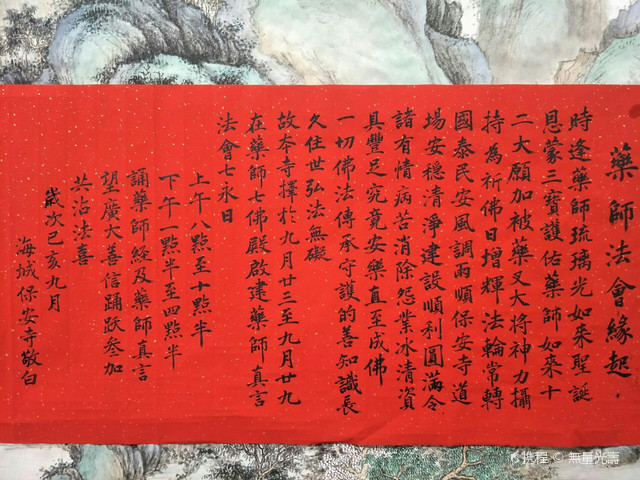 藥師法會緣起．
時逢藥師琉璃光如來聖誕
恩蒙三寶護佑藥師如來十
二大願加被藥叉大將神力攝
持為祈佛日增輝法輪常轉
國泰民安風調雨順保安寺道
場安穩清淨建設順利圓滿令
諸有情病苦消除怨業冰清資
具豐足究竟安樂直至成佛
一切佛法傳承守護的善知識長
久住世弘法無礙
故本寺擇於九月廿三至九月廿九
在藥師七佛殿啟建藥師真言
法會七永日
上午八點至十點半
下午一點半至四點半
誦藥師經及藥師真言
望廣大善信踊跃參加
共沾法喜
歲次己亥九月
海城保安寺敬白
携程 © 無量光壽